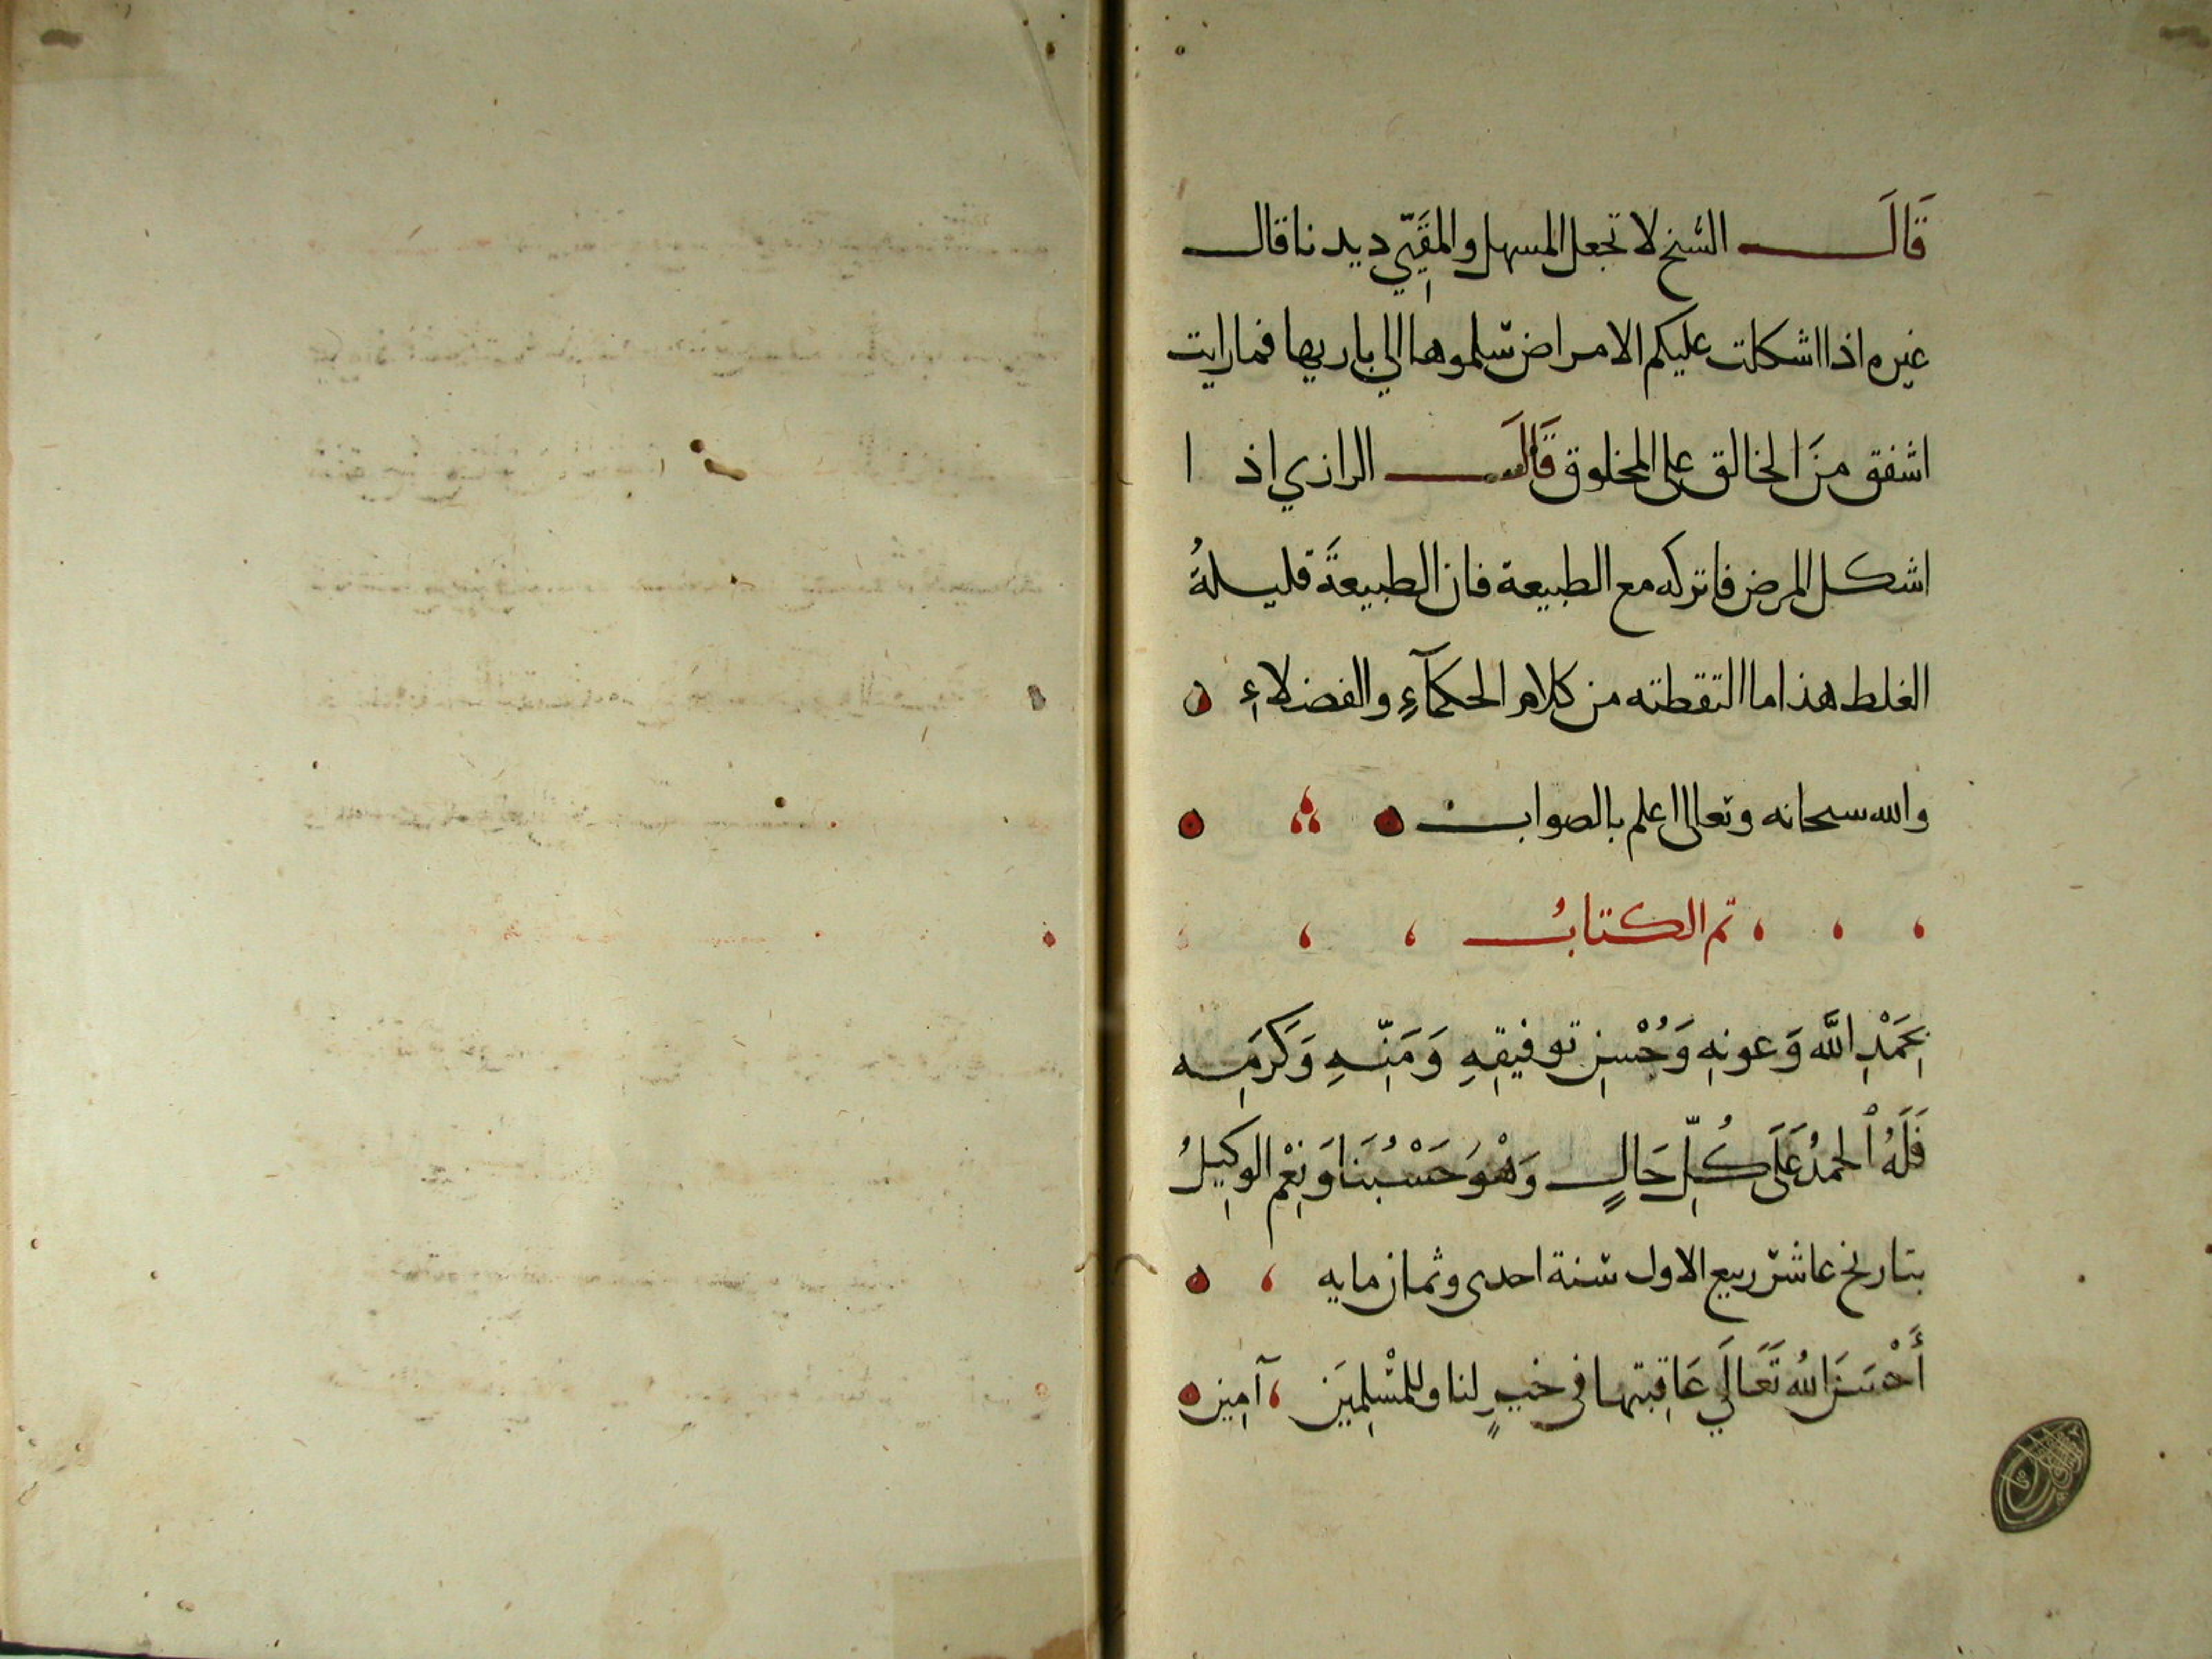 قَالَ الشيخ لا تجعل المسهل والمقَيِّي ديدنا قال
غيره اذا اشكلت عليكم الامراض سلموها الي باريها فما رايت
اشفق مزَ الخالق على المخلوق قَالَ الرازي اذ ا
اشكل المرض فاتركه مع الطبيعة فان الطبيعةَ قليلةُ
الغلط هذا ما التقطته من كلام الحكمآءِ والفضلاءِ
والله سبحانه وتعالى اعلم بالصواب
تم الكتابُ
بِحَمْدِ اللَّه وَعونِهِ وَحُسْنِ توفيقِهِ وَمَنِّهِ وَكَرَمِه
فَلَهُ الحمدُ عَلَى كُلِّ حَالٍ وَهْوَ حَسْبُنَا وَنِعْم الوكِيلُ
بتاريخ عاشر ربيع الاول سنة احدى وثمان مايه
أَحْسَنَ اللهُ تَعَالَي عَاقِبتها في خيرٍ لنا وللمسْلِمِيَن آمِين